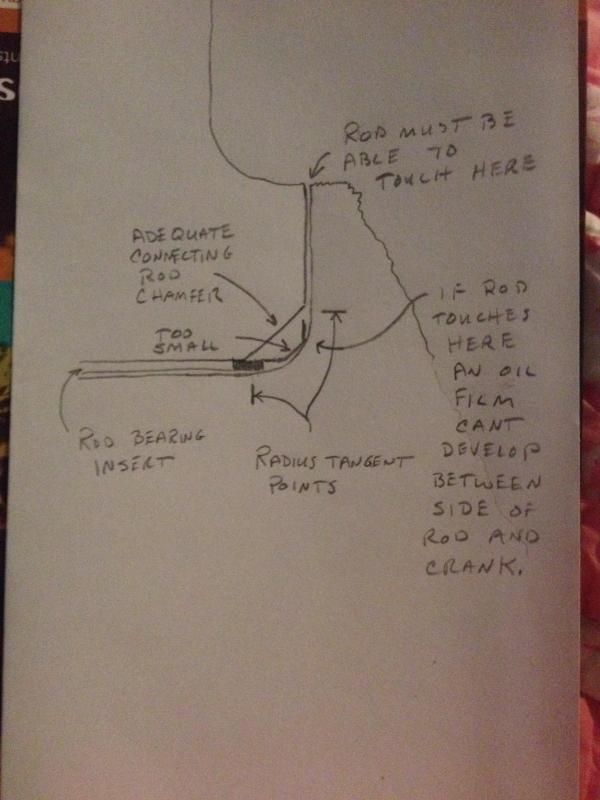 ROD MUST BE
ABLE TO
TOUCH HERE
ADEQUATE
CONNECTING
ROD
CHAMFER
TOO
SMALL
IF ROD
TOUCHES
HERE
AN OIL
FILM
CANT
DEVELOP
BETWEEN
SIDE OF
ROD AND
CRANK.
ROD BEARING
INSERT
RADIUS TANGENT
POINTS
S